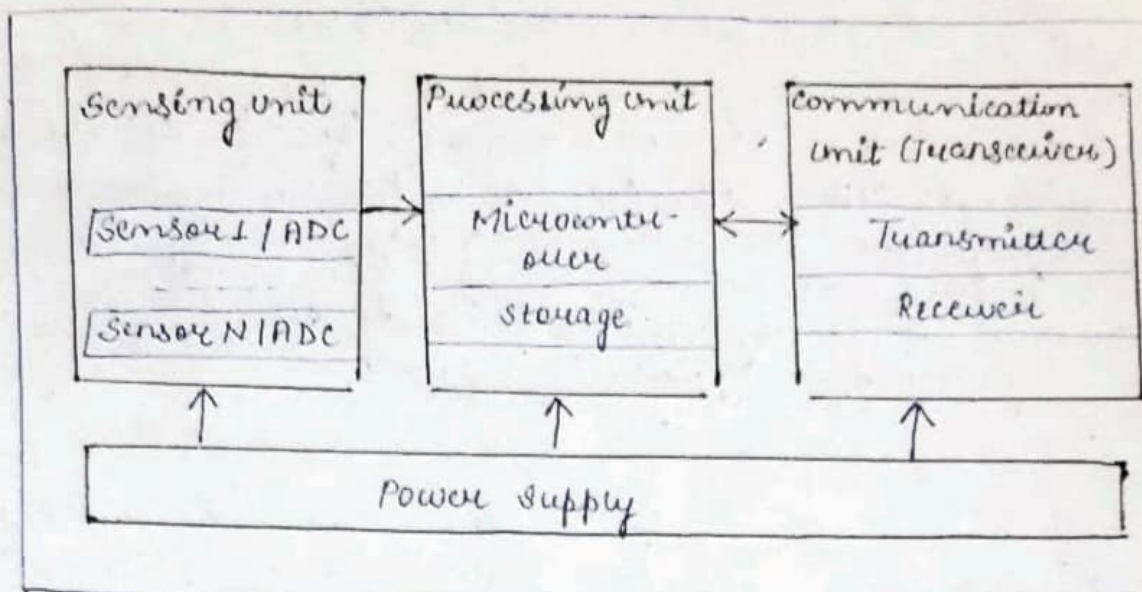 Sensing unit
Sensor 1 / ADC
Sensor N / ADC
Processing unit
Microcontr-
oller
Storage
Communication
unit (Transceiver)
Transmitter
Receiver
Power supply